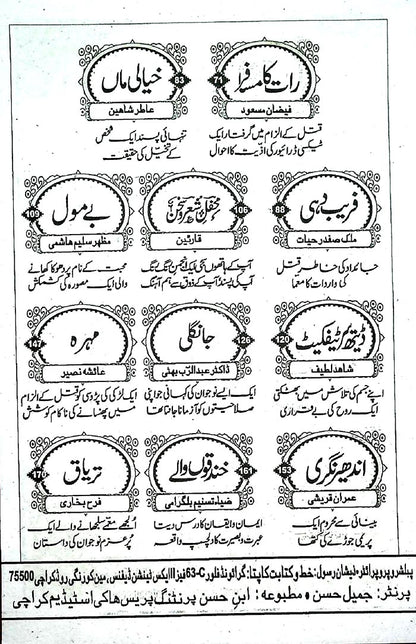 رات کا مسافر
71
فیضان مسعود
قتل کے الزام میں گرفتار ایک
ٹیکسی ڈرائیور کی اذیت کا احوال
خیالی ماں
83
عاطر شاہین
تنہائی پسند ایک شخص
کے تخیل کی حقیقت
فریب دہی
88
ملک صفدر حیات
جائداد کی خاطر قتل
کی واردات کا معما
محفل شعر و سخن
106
قارئین
آپ کے ہاتھوں سجی ایک رنگ
آپ کی پسند آپ کے ذوق سے ہم آہنگ
بے مول
109
مظہر سلیم ہاشمی
محبت کے نام پر دھوکا کھانے
والی ایک مصورہ کی کشمکش
ڈیتھ سرٹیفکیٹ
120
شاہد لطیف
اپنے جسم کی تلاش میں بھٹکتی
ایک روح کی بے قراری
جانگلی
126
ڈاکٹر عبدالرب بھٹی
ایک ایسے نوجوان کی کہانی جو اپنی
صلاحیتوں کو آزمانا جانتا تھا
مہرہ
147
عائشہ نصیر
ایک لڑکی کی پڑوسی کو قتل کے الزام
میں پھنسانے کی ناکام کوشش
اندھیر نگری
153
عمران قریشی
بینائی سے محروم ایک
پریمی جوڑے کی کتھا
خندقوں والے
161
ضیاء تسنیم بلگرامی
ایمان و ایقان کا درس دیتا
عبرت و بصیرت کا دلچسپ واقعہ
تریاق
170
فرح بخاری
الجھے مقدمے سلجھانے والے ایک
پرعزم نوجوان کی داستان
پبلشر و پروپرائٹر: ذیشان رسول: خط و کتابت کا پتا: گراؤنڈ فلور C-63 فیز II ایکس ٹینشن ڈیفنس، مین کورنگی روڈ کراچی 75500
پرنٹر: جمیل حسن • مطبوعہ: ابن حسن پرنٹنگ پریس ہاکی اسٹیڈیم کراچی